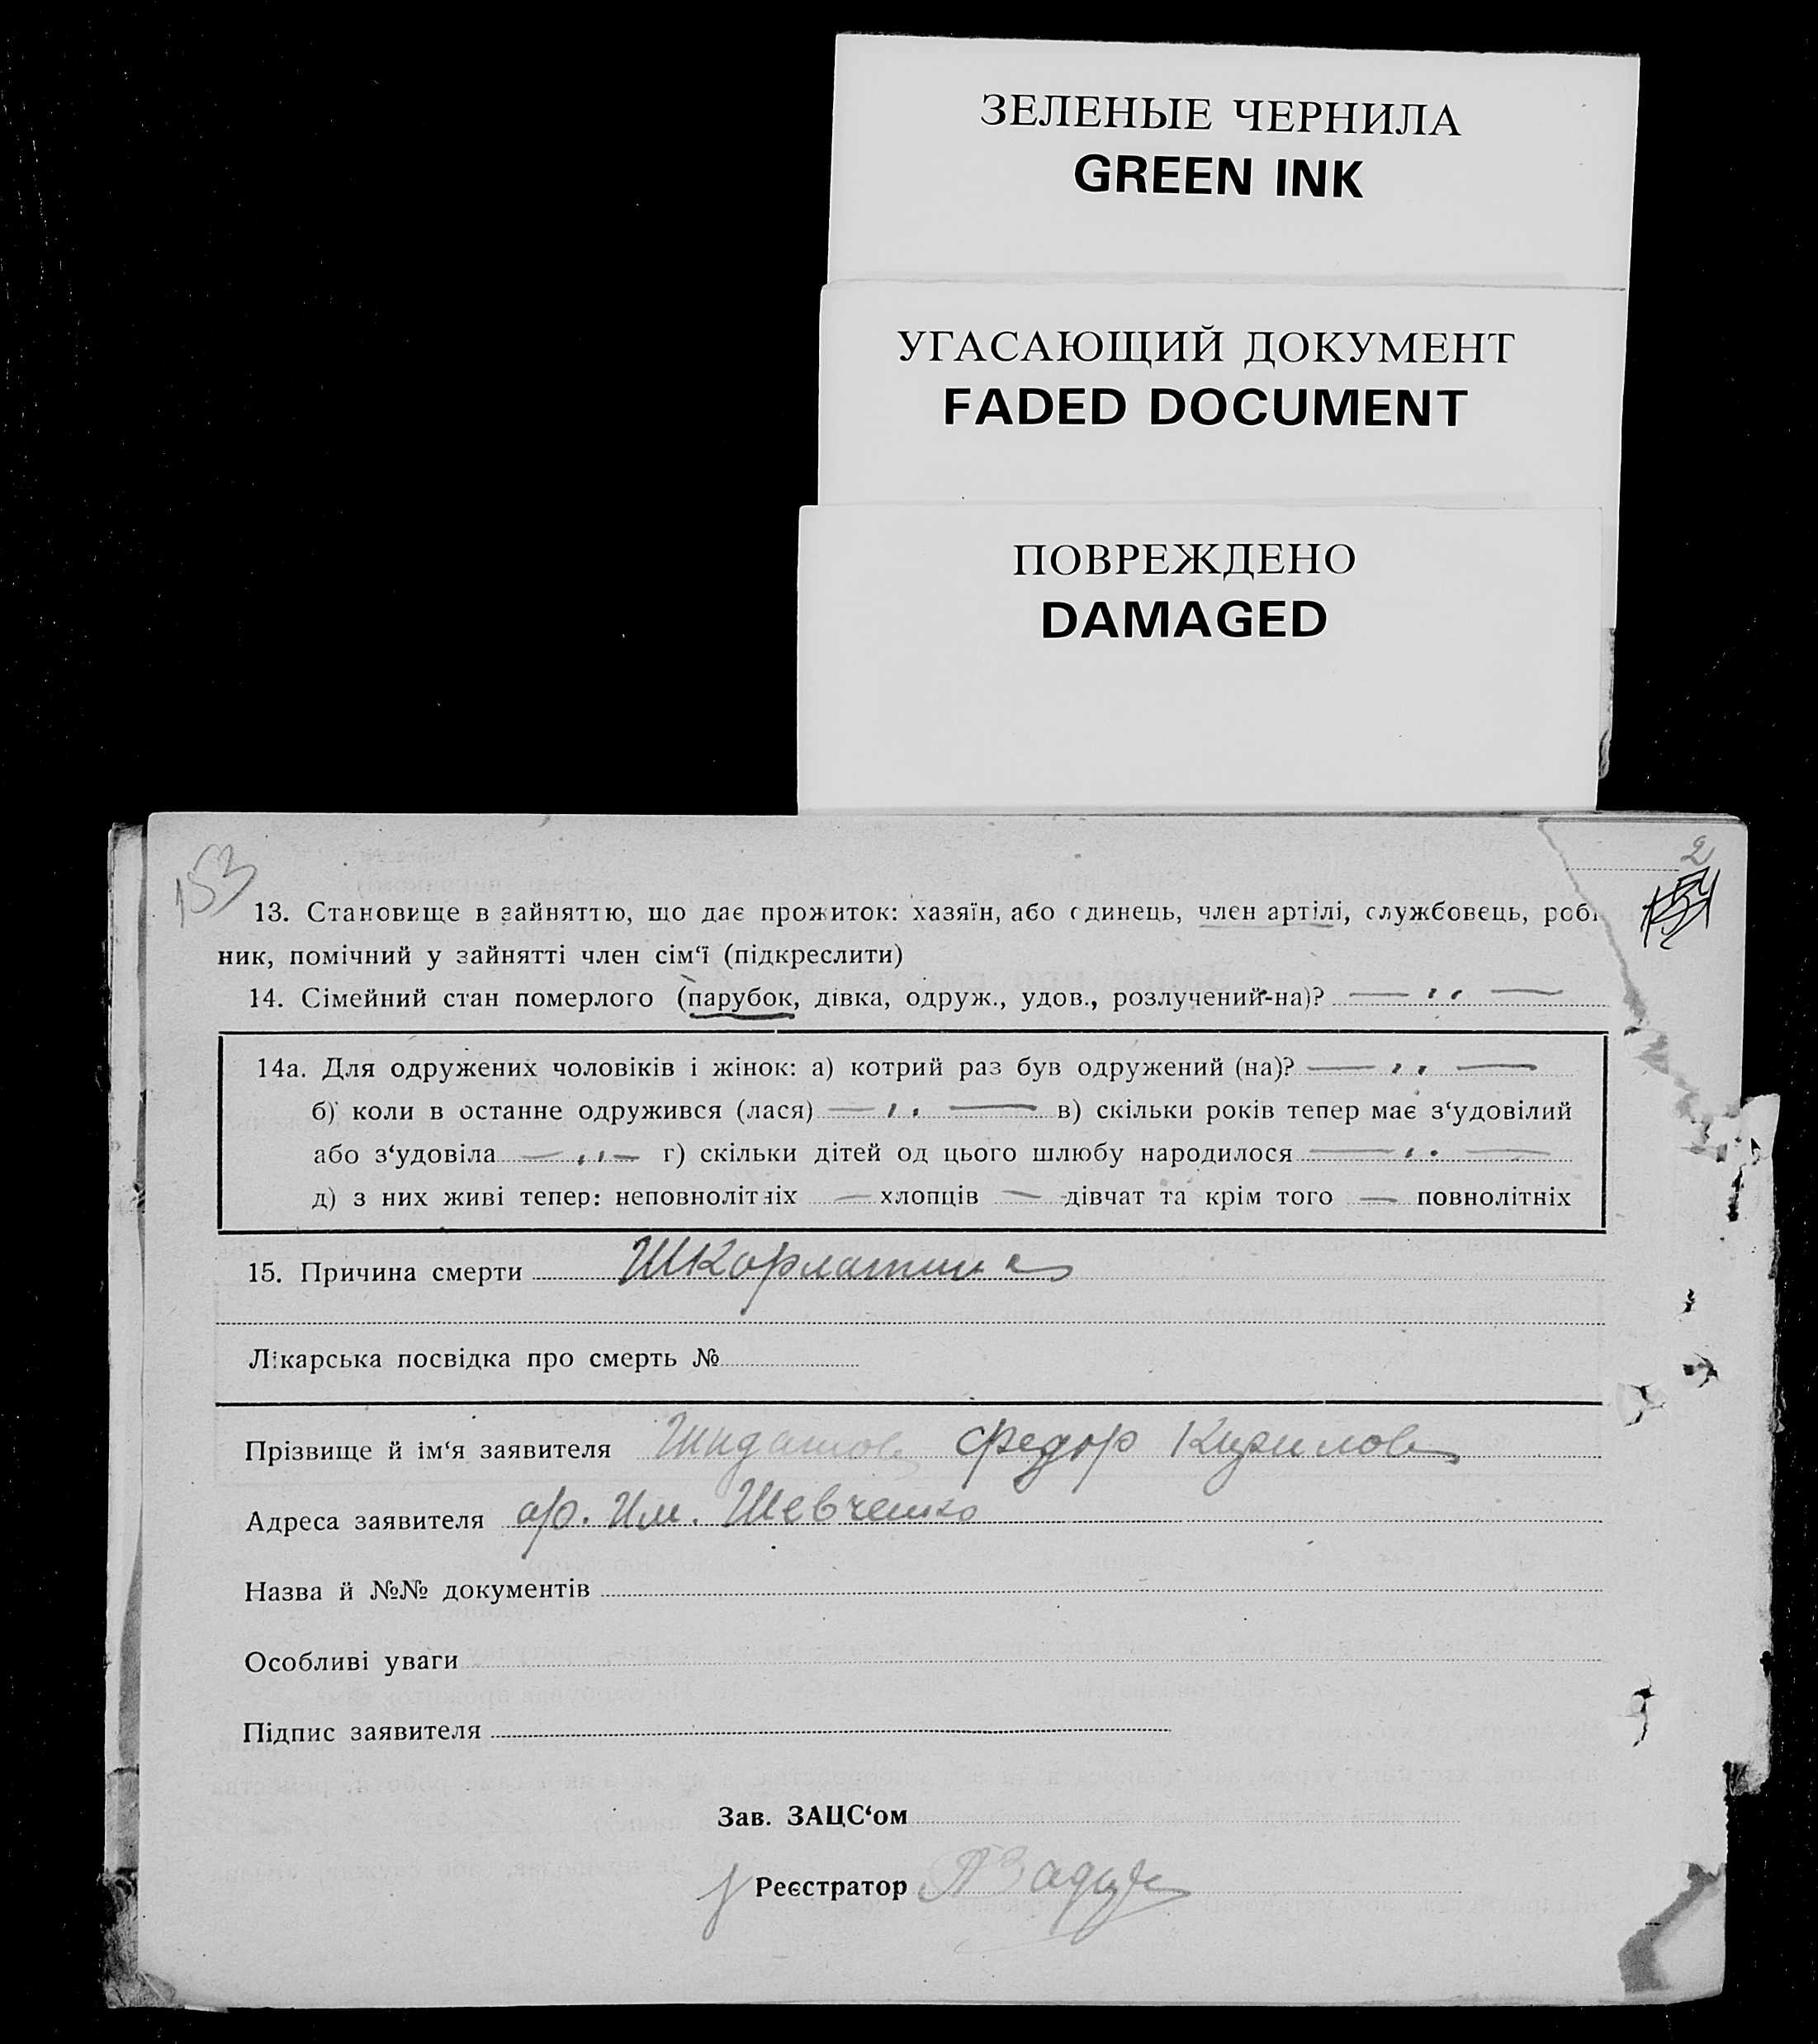 ЗЕЛЕНЫЕ ЧЕРНИЛА
GREEN INK
УГАСАЮЩИЙ ДОКУМЕНТ
FADED DOCUMENT
ПОВРЕЖДЕНО
DAMAGED
153
2
13. Становище в зайняттю, що дає прожиток: хазяїн, або єдинець, член артілі, службовець, робі
ник, помічний у зайнятті член сім‘ї (підкреслити)
14. Сімейний стан померлого (парубок, дівка, одруж., удов., розлучений-на)? — „ —
14а. Для одружених чоловіків і жінок: а) котрий раз був одружений (на)? — „ —
б) коли в останнє одружився (лася) — „ — в) скільки років тепер має з‘удовілий
або з‘удовіла — „ — г) скільки дітей од цього шлюбу народилося — „ —
д) з них живі тепер: неповнолітніх — хлопців — дівчат та крім того — повнолітніх
15. Причина смерти Шкорлатина
Лікарська посвідка про смерть №
Прізвище й ім‘я заявителя Федор Кирилов
Адреса заявителя ар. Им. Шевченко
Назва й №№ документів
Особливі уваги
Підпис заявителя
Зав. ЗАЦС‘ом
Реєстратор